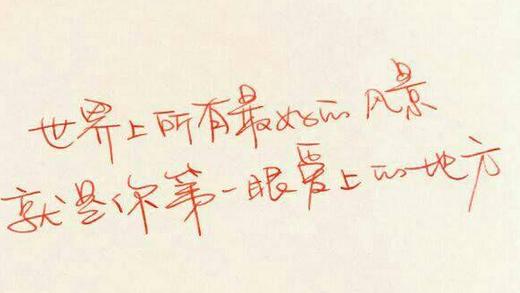 世界上所有最好的风景
就是你第一眼爱上的地方